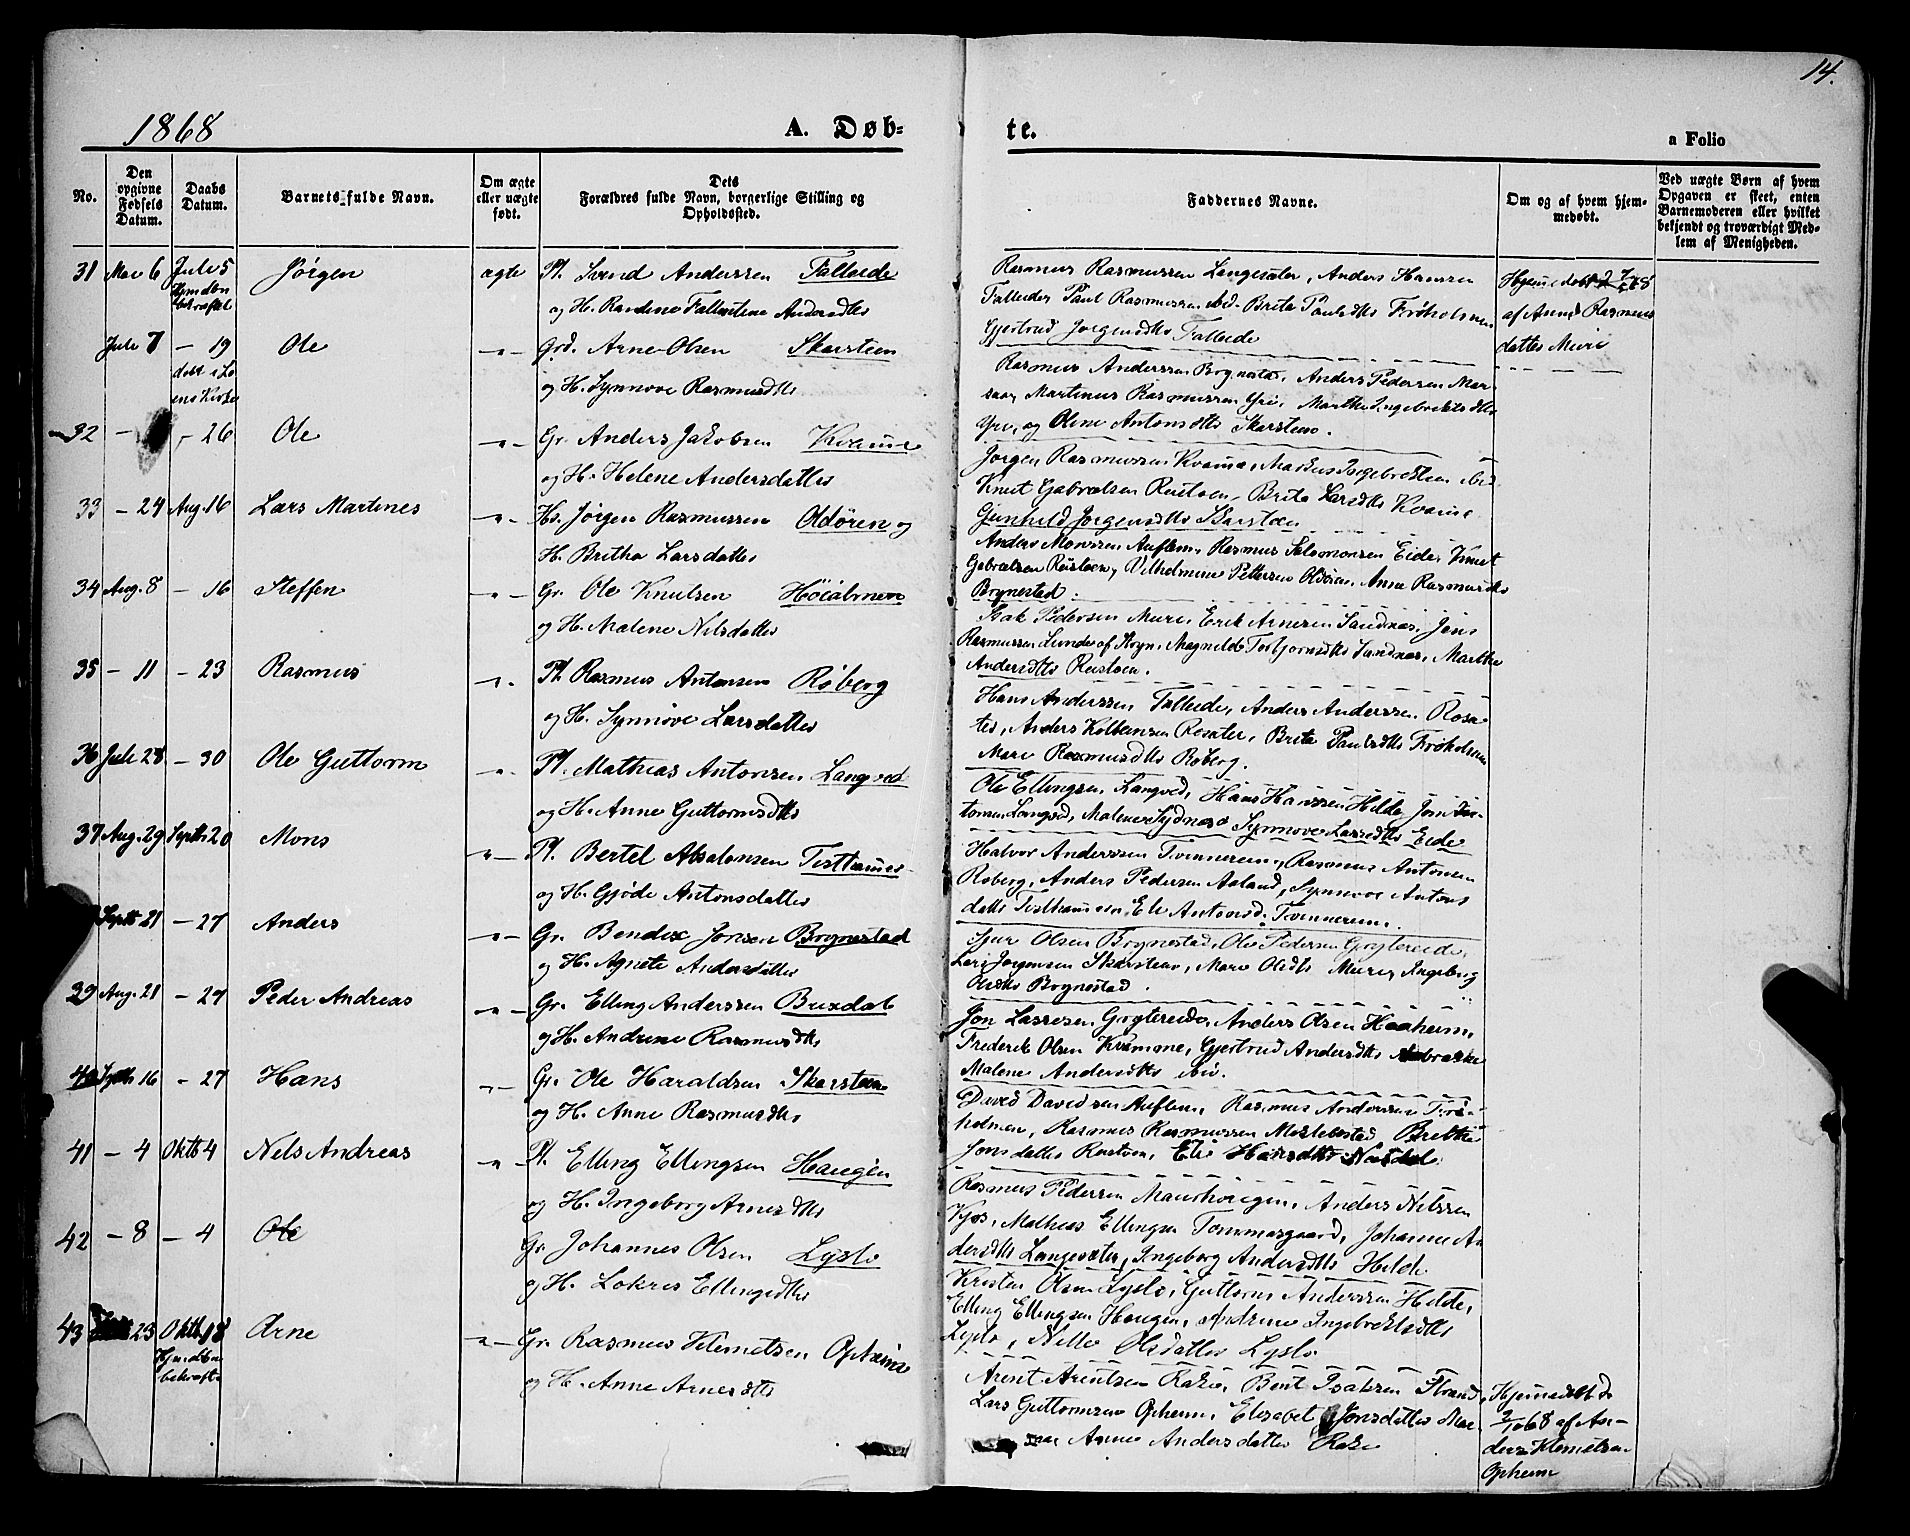 14.
1868
A. Døb-
te.
a Folio
No.
Den opgivne Fødsels Datum.
Daabs Datum.
Barnets fulde Navn.
Om ægte eller uægte født.
Dets Forældres fulde Navn, borgerlige Stilling og Opholdssted.
Faddernes Navne.
Om og af hvem hjemmedøbt.
Ved uægte Børn af hvem Opgaven er skeet, enten Barnemoderen eller hvilket bekjendt og troværdigt Medlem af Menigheden.
31 Mai 6 Juli 5 Jørgen ægte Pl. Svend Anderssen Falleide
og H. Randine Andersdtr
Rasmus Rasmussen Langesæter, Anders Hansen
Falleide, Paul Rasmussen ibd. Brita Paulsdtr Frøholmen
Gjertrud Jørgensdtr Falleide
af Anne Rasmus
datter Muri
Juli 7 - 19 Ole -"- Grd. Arne Olsen Skarsteen
og H. Synnøve Rasmusdtr
Rasmus Anderssen Brynestad, Anders Pedersen
Martinus Rasmussen Yri, Marthe Ingebrektsdtr
Yri, og Oline Antonsdtr Skarsteen.
32 - 26 Ole -"- Gr. Anders Jakobsen Kvame
og H. Helene Andersdatter
Jørgen Rasmussen Kvame, Markus Ingebrektsen ibid
Knut Gabrielsen Rustøen, Brita Larsdtr Kvame
Gunhild Jørgensdtr Skarsteen
33 - 24 Aug. 16 Lars Martines -"- Hs. Jørgen Rasmussen Oldøren og
H. Britha Larsdatter
Anders Monssen Auflem, Rasmus Salomonsen Eide, Knut
Gabrielsen Rustøen, Vilhelmine Pettersen Oldøren, Anne Rasmusdtr
Brynestad.
34 Aug. 8 - 16 Steffen -"- Gr. Ole Knutsen
og H. Malene Nilsdatter
Isak Pedersen Muri, Erik Arnesen Sandnes, Jens
Rasmussen Sunde af Stryn, Magnilde Torbjørnsdtr Sandnes, Marthe
Andersdtr Rustøen.
35 - 11 - 23 Rasmus -"- Pl. Rasmus Antonsen Røberg
og H. Synnøve Larsdatter
Hans Anderssen Falleide, Anders Anderssen Rosæ
ter, Anders Kolbeinsen Rosæter, Brita Paulsdtr Frøholmen
Mari Rasmusdtr Roberg.
36 Juli 28 - 30 Ole Guttorm -"- Pl. Mathias Antonsen Langved
og H. Anne Guttormsdtr
Ole Ellingsen Langved, Hans Hanssen Hilde, Jon
Langved, Malene Sydnes, Synnøve Larsdtr Eide
37 Aug. 29 Septbr 20 Mons -"- Pl. Bertel Absalonsen Tisthamer
og H. Gjøde Antonsdatter
Halvor Anderssen Tvinnereim, Rasmus Antonsen
Roberg, Anders Pedersen Aaland, Synnøve Antons
datter Tisthamer, Eli Antonsd. Tvinnereim.
Septbr 21 - 27 Anders -"- Gr. Bendix Jonsen Brynestad
og H. Agnete Andersdatter
Sjur Olsen Brynestad, Ole Pedersen Grytereide,
Lars Jørgensen Skarsteen, Mari Olsdtr Muri, Ingeborg
Olsdtr Brynestad.
39 Aug. 21 - 27 Peder Andreas -"- Gr. Elling Anderssen Brixdal
og H. Andrine Rasmusdtr
Jon Lassesen Grytereide, Anders Olsen Haaheim,
Frederik Olsen Kvamme, Gjertrud Andersdtr
Malene Andersdtr ibid.
40 Septbr 16 - 27 Hans -"- Gr. Ole Haraldsen Skarsteen
og H. Anne Rasmusdtr
David Davidsen Auflem, Rasmus Anderssen Frø-
holmen, Rasmus Rasmussen Meelebostad, Brithe
Jonsdatter Rustøen, Eli Hansdtr
41 - 4 Oktbr 4 Nils Andreas -"- Pl. Elling Ellingsen Haugen
og H. Ingeborg Arnesdtr
Rasmus Pedersen Maurhougen, Anders Nilssen
Kjøs, Mathias Ellingsen Tommasgaard, Johanne An
dersdtr Langesæter, Ingeborg Andersdtr Hilde
42 - 8 - 4 Ole Gr. Johannes Olsen Lyslo
og H. Lokris Ellingsdtr
Kristen Olsen Lyslo, Guttorm Anderssen Hilde,
Elling Ellingsen Haugen, Andrine Ingebrektsdtr
Lyslo, Nille Olsdatter Lyslo
43 23 Oktbr 18 Arne -"- Gr. Rasmus Klemetsen Opheim
og H. Anne Arnesdtr
Arent Arentsen Rake, Bent Isaksen Strand,
Lars Guttormsen Opheim, Elisabet Jonsdatter
Anne Andersdatter Rake
Hjemmedøbt d.
2/10 68 af An-
ders Klemetsen
Opheim